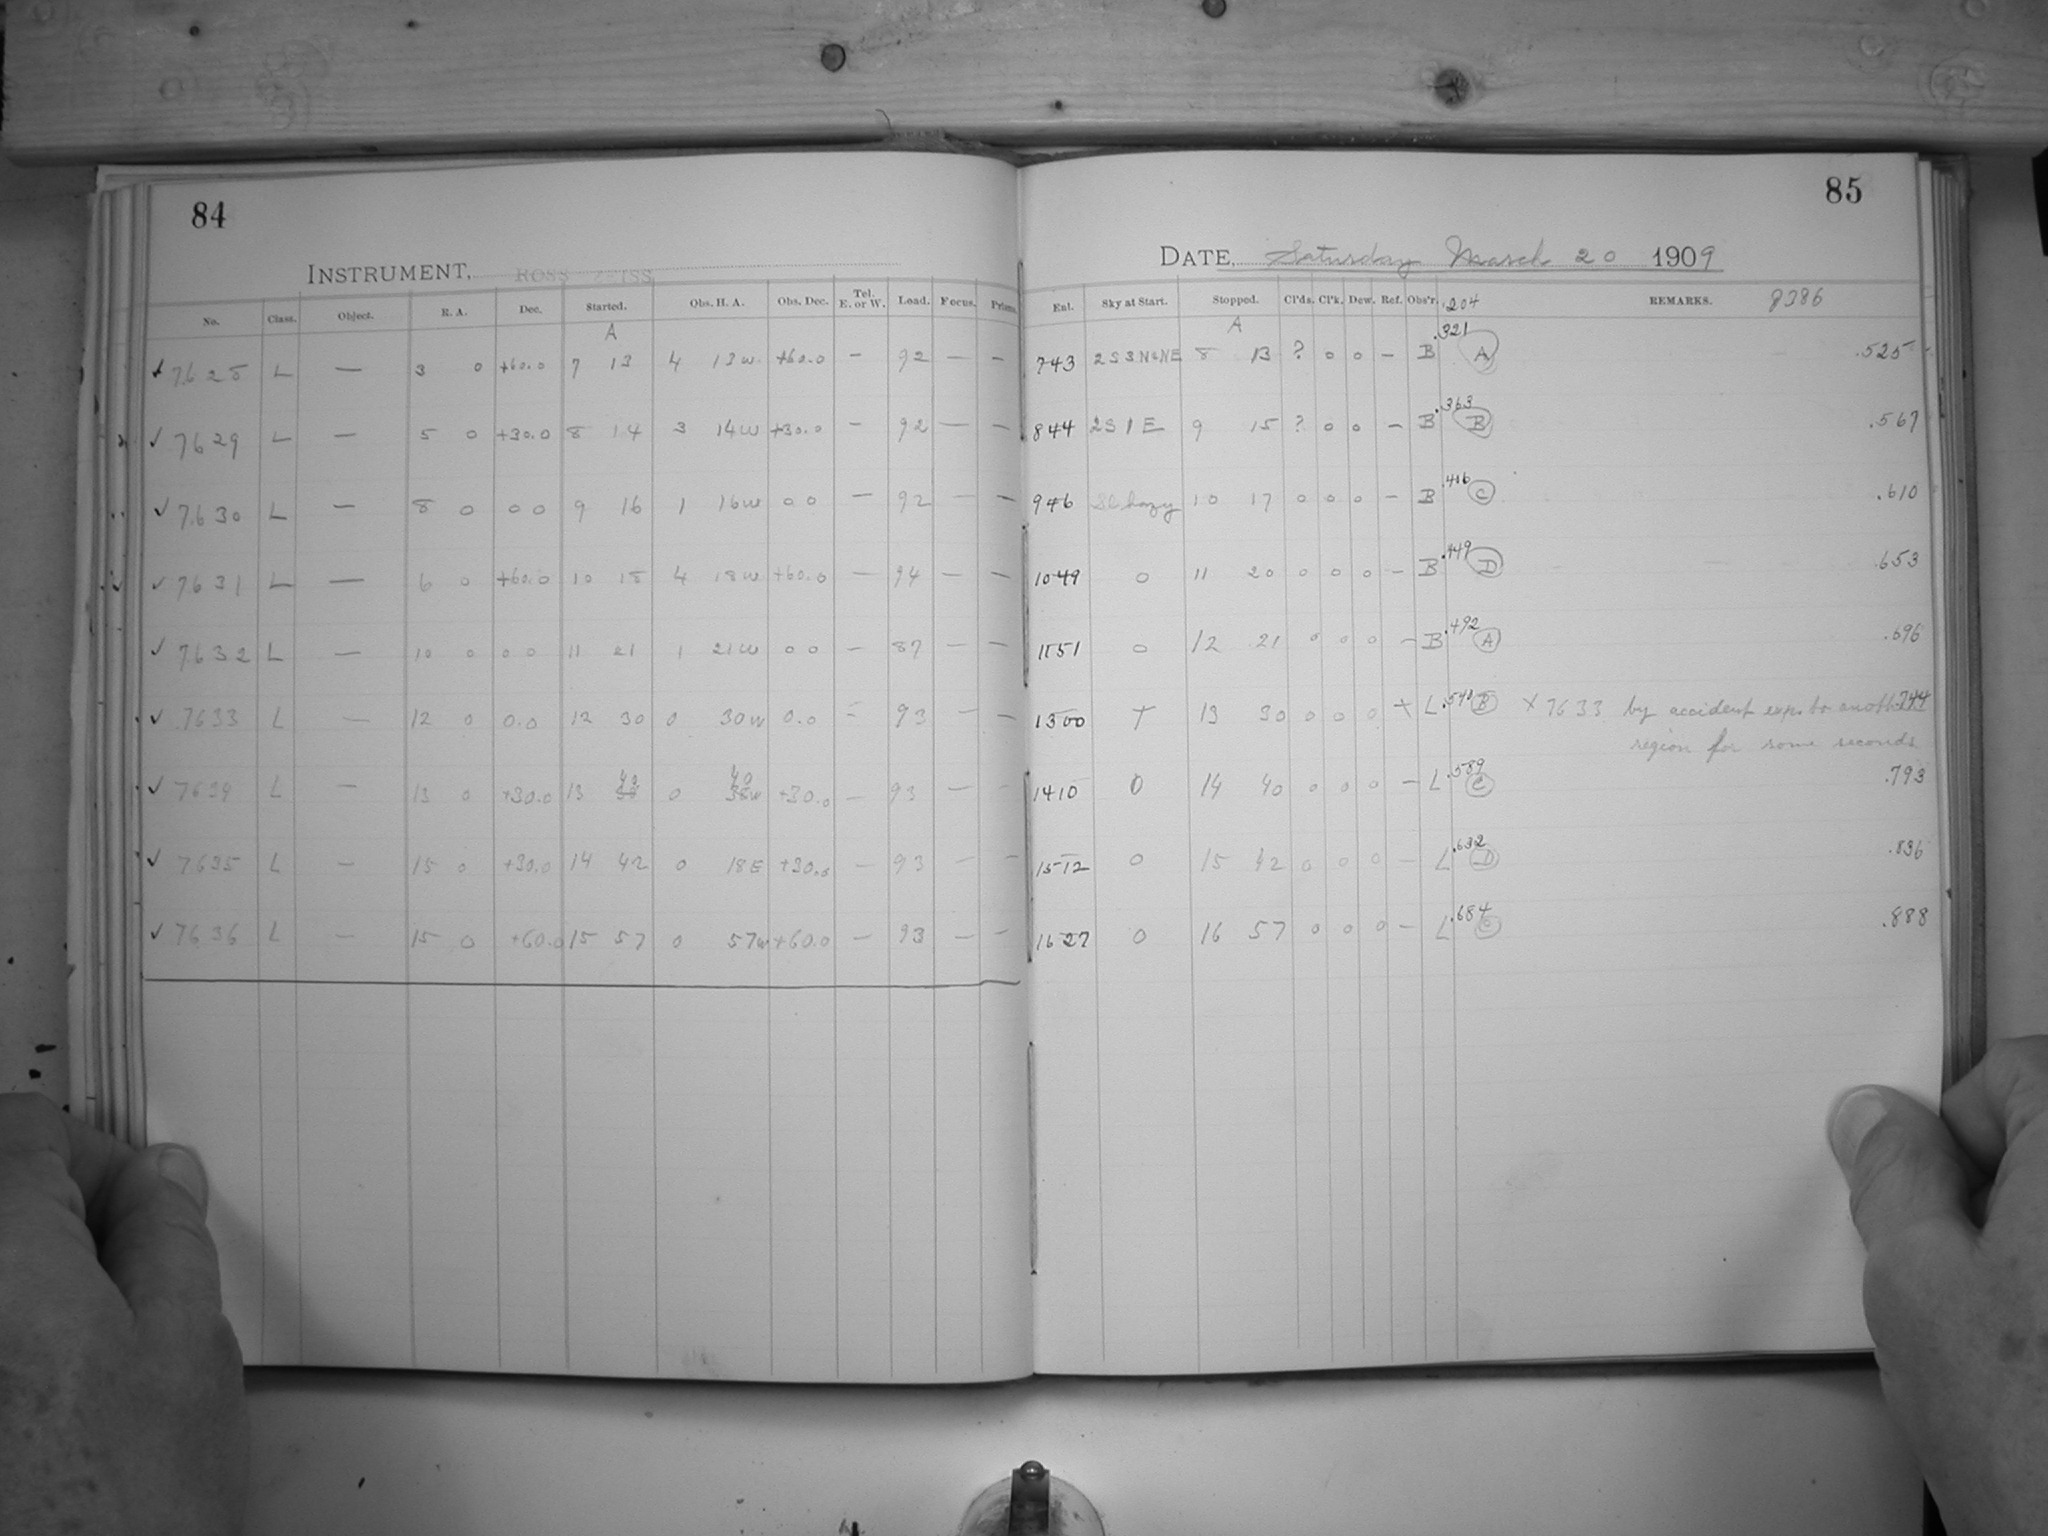 84
INSTRUMENT, ROSS ZEISS
No. Class. Object. R. A. Dec. Started. Obs. H. A. Obs. Dec. Tel. E. or W. Load. Focus. Prisms.
A
✓ 7628 L — 3 0 +60.0 7 13 4 13W +60.0 — 92 — —
✓ 7629 L — 5 0 +30.0 8 14 3 14W +30.0 — 92 — —
✓ 7630 L — 8 0 0 0 9 16 1 16W 0 0 — 92 — —
✓ 7631 L — 6 0 +60.0 10 18 4 18W +60.0 — 94 — —
✓ 7632 L — 10 0 0 0 11 21 1 21W 0 0 — 87 — —
✓ 7633 L — 12 0 0.0 12 30 0 30W 0.0 — 93 — —
✓ 7634 L — 13 0 +30.0 13 40 0 40 W +30.0 — 93 — —
✓ 7635 L — 15 0 +30.0 14 42 0 18E +30.0 — 93 — —
✓ 7636 L — 15 0 +60.0 15 57 0 57W +60.0 — 93 — —
85
DATE, Saturday March 20 1909
Enl. Sky at Start. Stopped. Cl'ds. Cl'k. Dew. Ref. Obs'r. .204 REMARKS. 8386
A
743 2S3N&NE 8 13 ? 0 0 — B .321 A .525
844 2S1E 9 15 ? 0 0 — B .363 B .567
946 Sl. hazy 10 17 0 0 0 — B .406 C .610
1049 0 11 20 0 0 0 — B .449 D .653
1151 0 12 21 0 0 0 — B .492 A .696
1300 + 13 30 0 0 0 + L .540 B × 7633 by accident exp. to another .744
region for some seconds
1410 0 14 40 0 0 0 — L .589 C .793
1512 0 15 42 0 0 0 — L .632 D .836
1627 0 16 57 0 0 0 — L .684 C .888